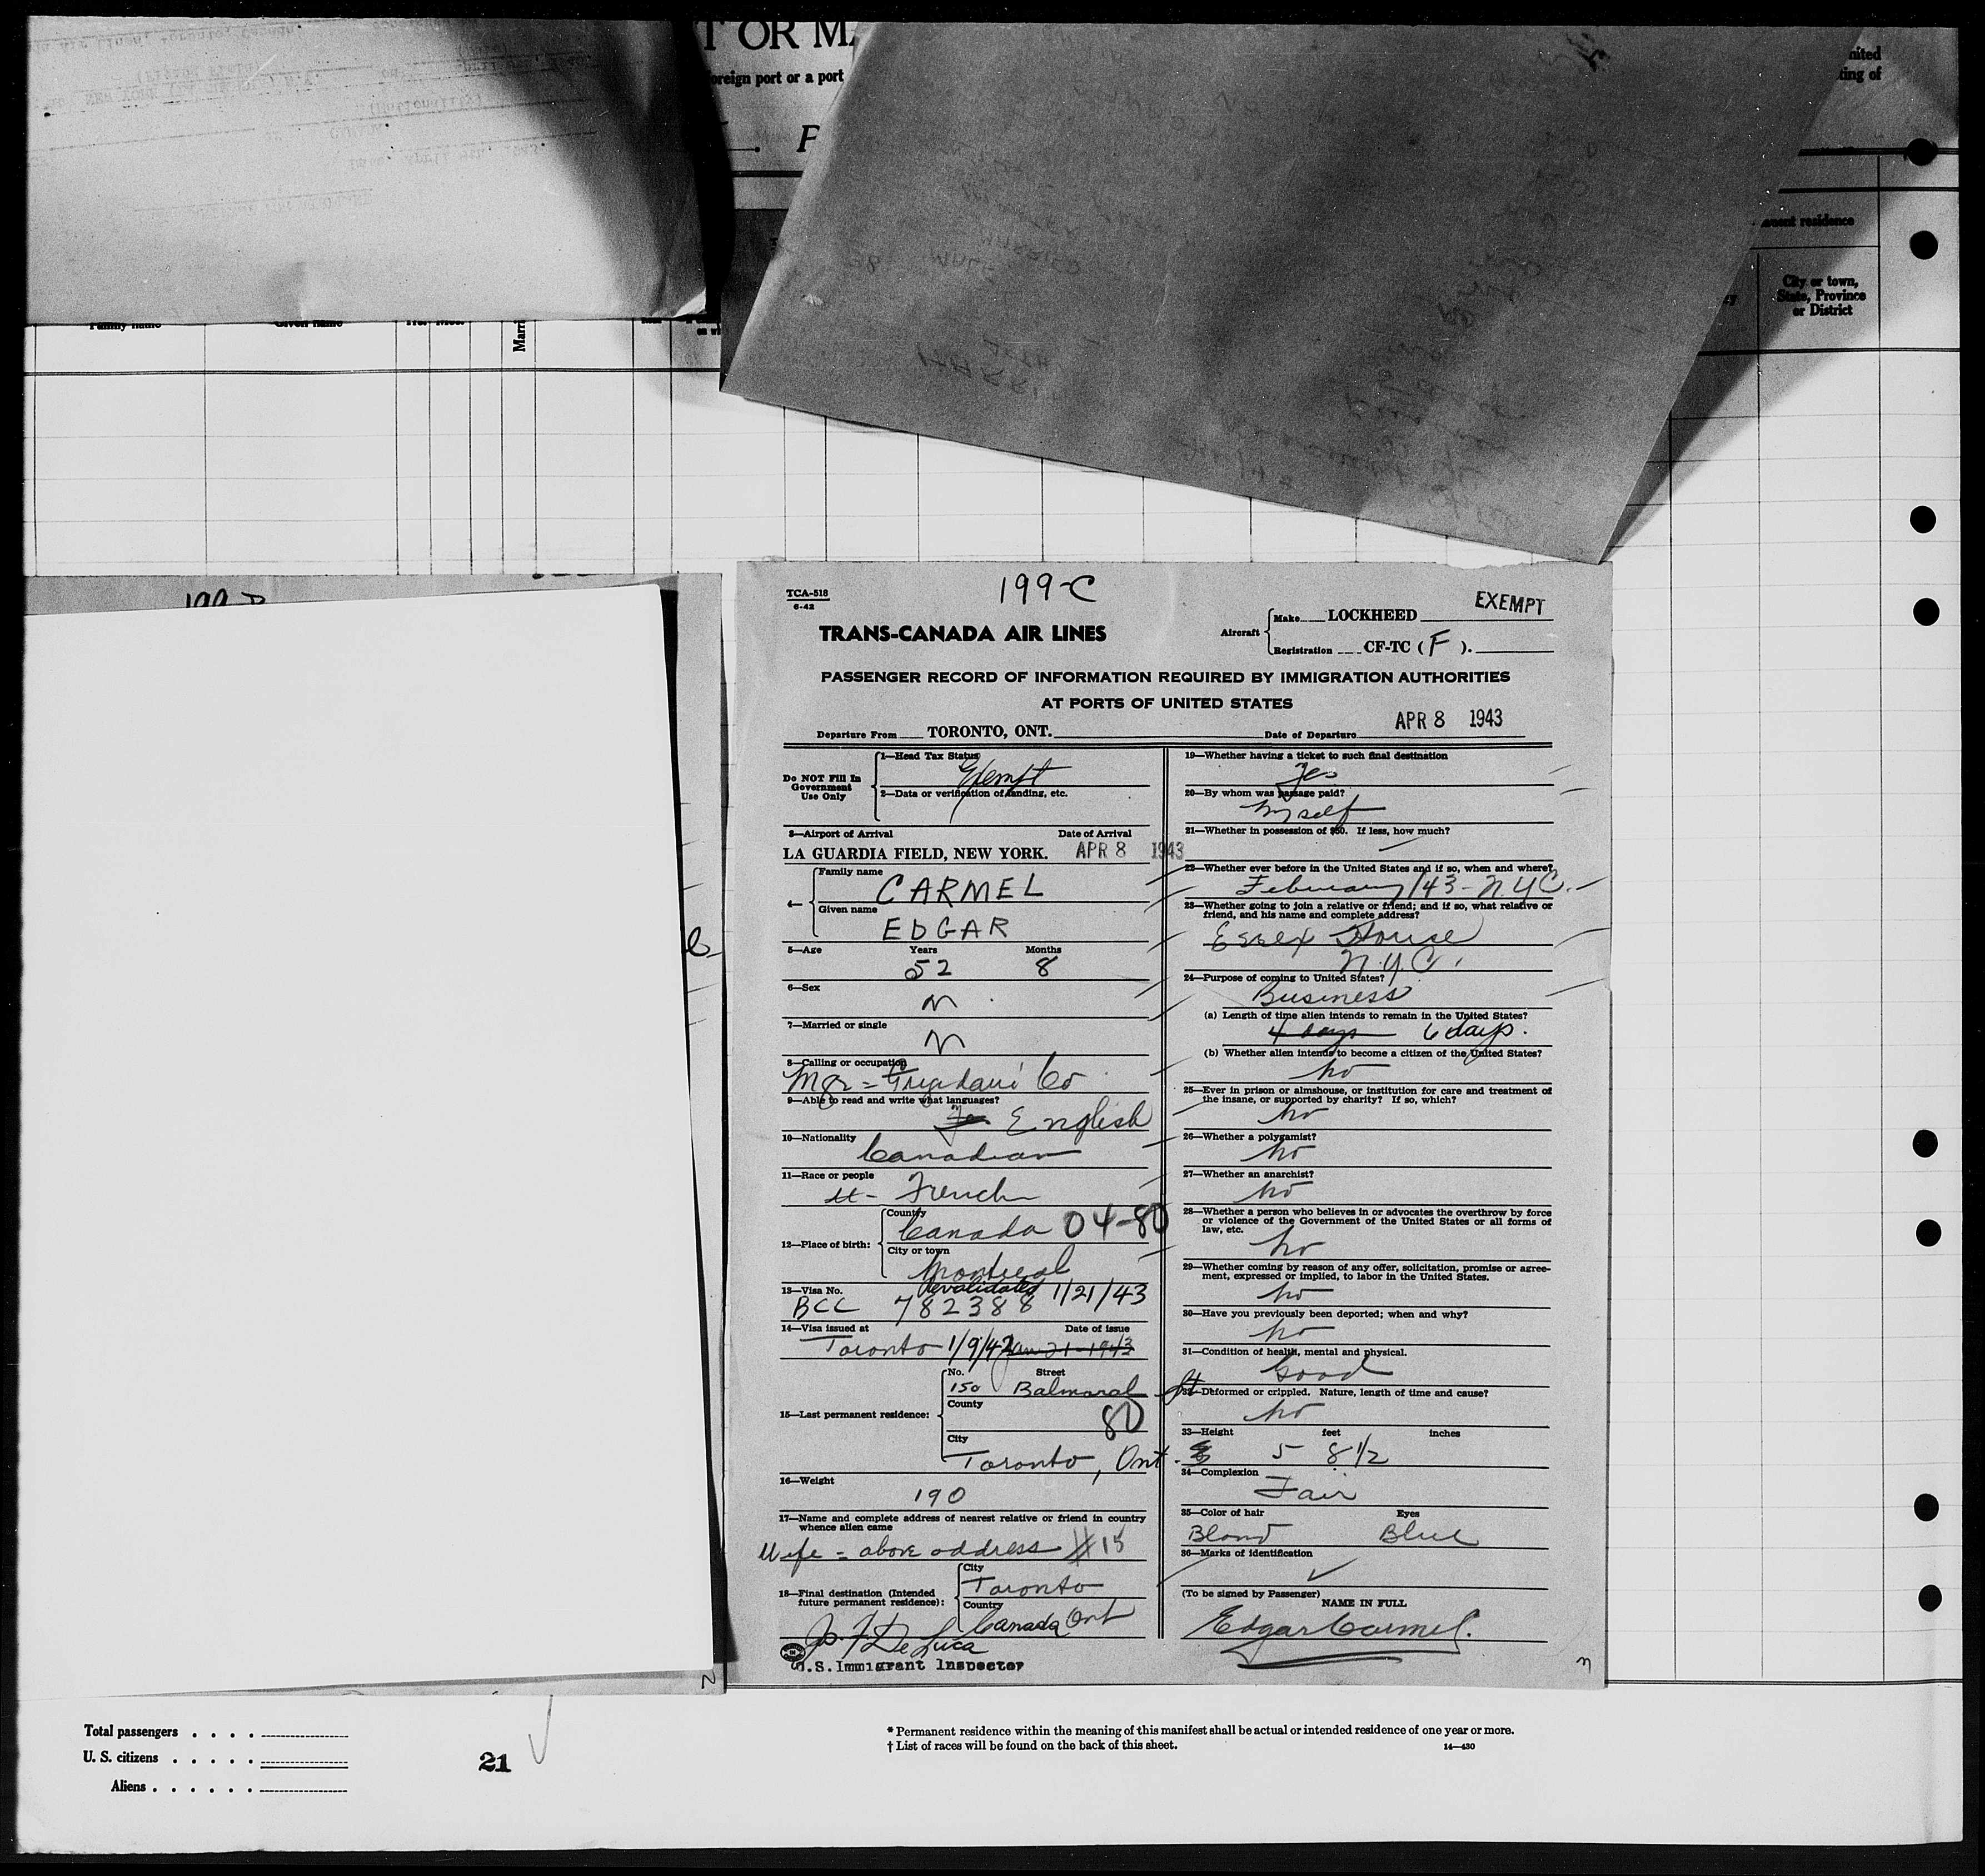 T OR MA
foreign port or a port
F
Family name
Given name
Marri
ment residence
City or town,
State, Province
or District
nited
ting of
199-C
TCA-518
6-42
EXEMPT
TRANS-CANADA AIR LINES
Aircraft
Make LOCKHEED
Registration CF-TC (F).
PASSENGER RECORD OF INFORMATION REQUIRED BY IMMIGRATION AUTHORITIES
AT PORTS OF UNITED STATES
Departure From TORONTO, ONT. Date of Departure APR 8 1943
Do NOT Fill In
Government
Use Only
1—Head Tax Status
Exempt
2—Data or verification of landing, etc.
3—Airport of Arrival Date of Arrival
LA GUARDIA FIELD, NEW YORK. APR 8 1943
4— Family name
CARMEL
Given name
EDGAR
5—Age Years Months
52 8
6—Sex
M
7—Married or single
M
8—Calling or occupation
Mgr = Co
9—Able to read and write what languages?
English
10—Nationality
Canadian
11—Race or people
French
12—Place of birth:
Country
Canada 04-80
City or town
Montreal
13—Visa No. Revalidated 1/21/43
BCC 782388
14—Visa issued at Date of issue
Toronto 1/9/42 Jan 21-1943
15—Last permanent residence:
No. Street
150 Balmoral
County
80
City
Toronto, Ont.
16—Weight
190
17—Name and complete address of nearest relative or friend in country
whence alien came
Wife = above address #15
18—Final destination (Intended
future permanent residence):
City
Toronto
Country
Canada Ont
De Luca
U.S. Immigrant Inspector
19—Whether having a ticket to such final destination
Yes
20—By whom was passage paid?
Myself
21—Whether in possession of $50. If less, how much?
22—Whether ever before in the United States and if so, when and where?
February/43 - N.Y.C.
23—Whether going to join a relative or friend; and if so, what relative or
friend, and his name and complete address?
Essex House
N.Y.C.
24—Purpose of coming to United States?
Business
(a) Length of time alien intends to remain in the United States?
4 days 6 days.
(b) Whether alien intends to become a citizen of the United States?
No
25—Ever in prison or almshouse, or institution for care and treatment of
the insane, or supported by charity? If so, which?
No
26—Whether a polygamist?
No
27—Whether an anarchist?
No
28—Whether a person who believes in or advocates the overthrow by force
or violence of the Government of the United States or all forms of
law, etc.
No
29—Whether coming by reason of any offer, solicitation, promise or agree-
ment, expressed or implied, to labor in the United States.
No
30—Have you previously been deported; when and why?
No
31—Condition of health, mental and physical.
Good
32—Deformed or crippled. Nature, length of time and cause?
No
33—Height feet inches
5 8 1/2
34—Complexion
Fair
35—Color of hair Eyes
Blond Blue
36—Marks of identification
(To be signed by Passenger)
NAME IN FULL
Edgar Carmel.
Total passengers
U. S. citizens
Aliens
21
* Permanent residence within the meaning of this manifest shall be actual or intended residence of one year or more.
† List of races will be found on the back of this sheet.
14—430